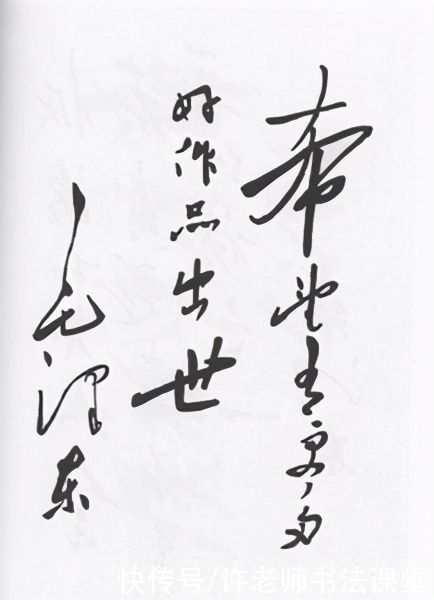 希望有更多
好作品出世
毛泽东
快传号/许老师书法课堂